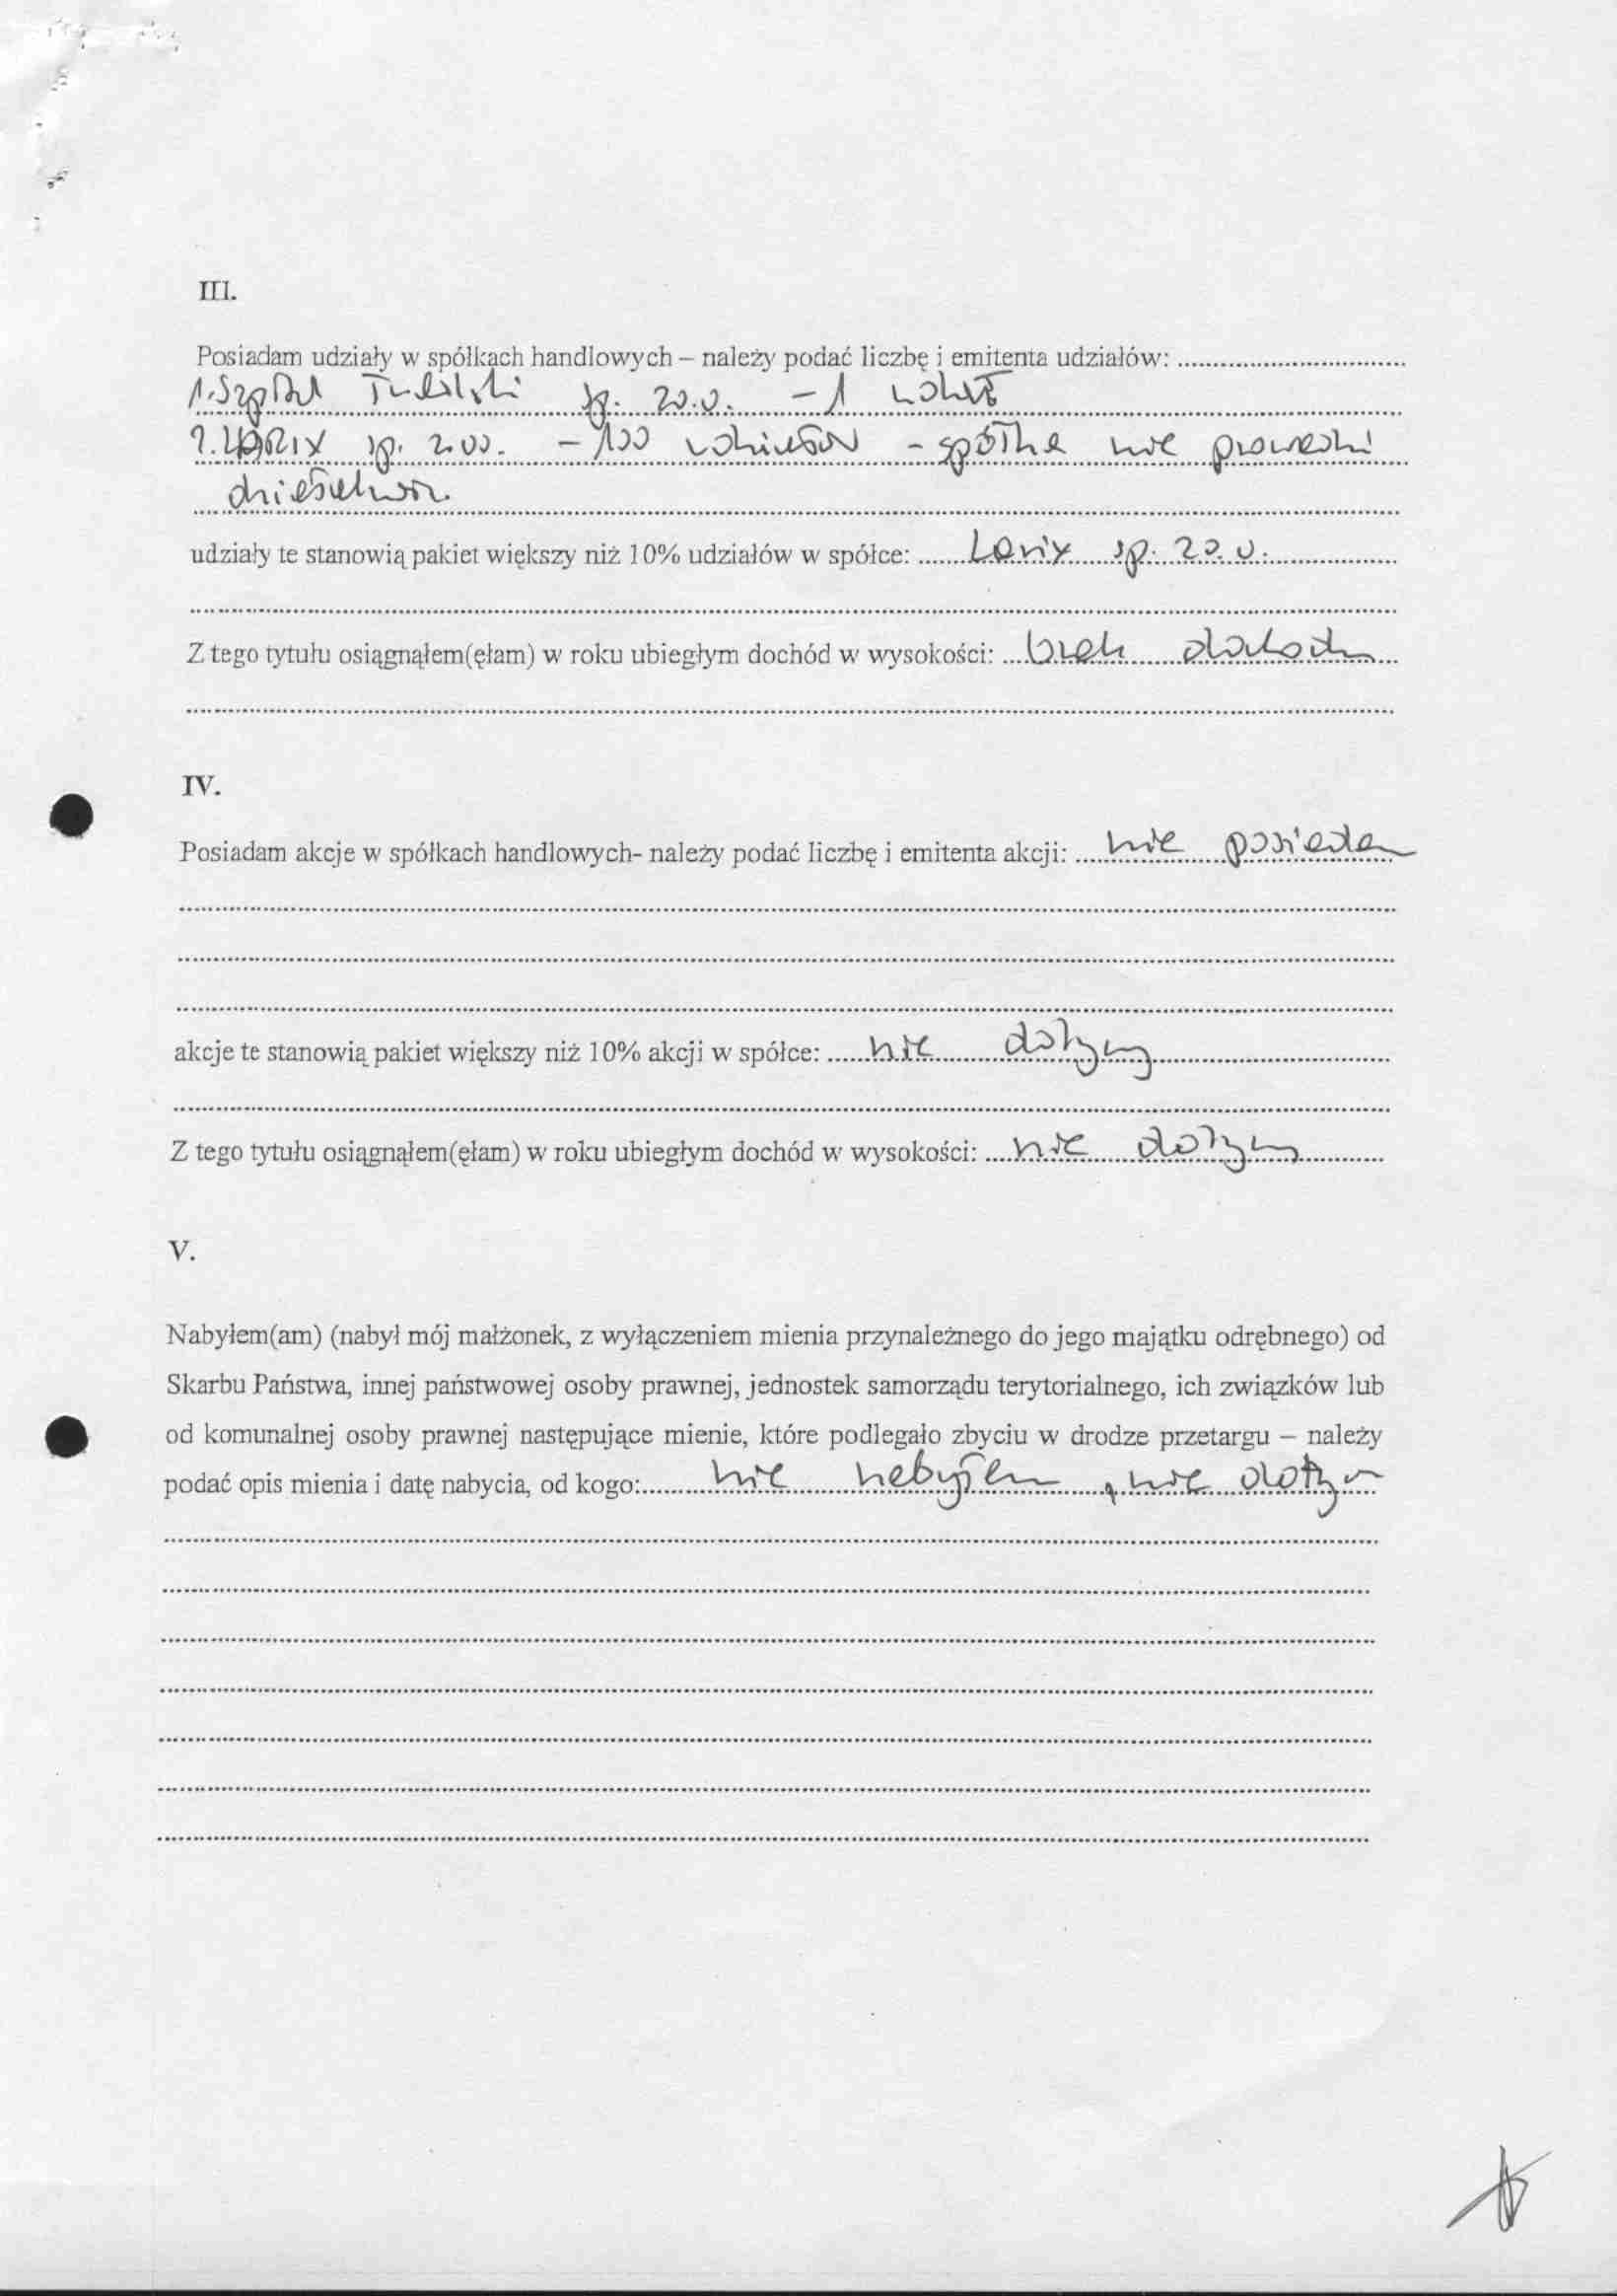 III.
Posiadam udziały w spółkach handlowych – należy podać liczbę i emitenta udziałów: ..............................
1. Szpital sp. z o.o. – 1 udział
2. LARIX sp. z o.o. – 100 udziałów – spółka nie prowadzi
działalności.
udziały te stanowią pakiet większy niż 10% udziałów w spółce: Larix sp. z o.o.
Z tego tytułu osiągnąłem(ęłam) w roku ubiegłym dochód w wysokości: brak dochodu
IV.
Posiadam akcje w spółkach handlowych- należy podać liczbę i emitenta akcji: nie posiadam
akcje te stanowią pakiet większy niż 10% akcji w spółce: nie dotyczy
Z tego tytułu osiągnąłem(ęłam) w roku ubiegłym dochód w wysokości: nie dotyczy
V.
Nabyłem(am) (nabył mój małżonek, z wyłączeniem mienia przynależnego do jego majątku odrębnego) od
Skarbu Państwa, innej państwowej osoby prawnej, jednostek samorządu terytorialnego, ich związków lub
od komunalnej osoby prawnej następujące mienie, które podlegało zbyciu w drodze przetargu – należy
podać opis mienia i datę nabycia, od kogo: nie nabyłem, nie dotyczy